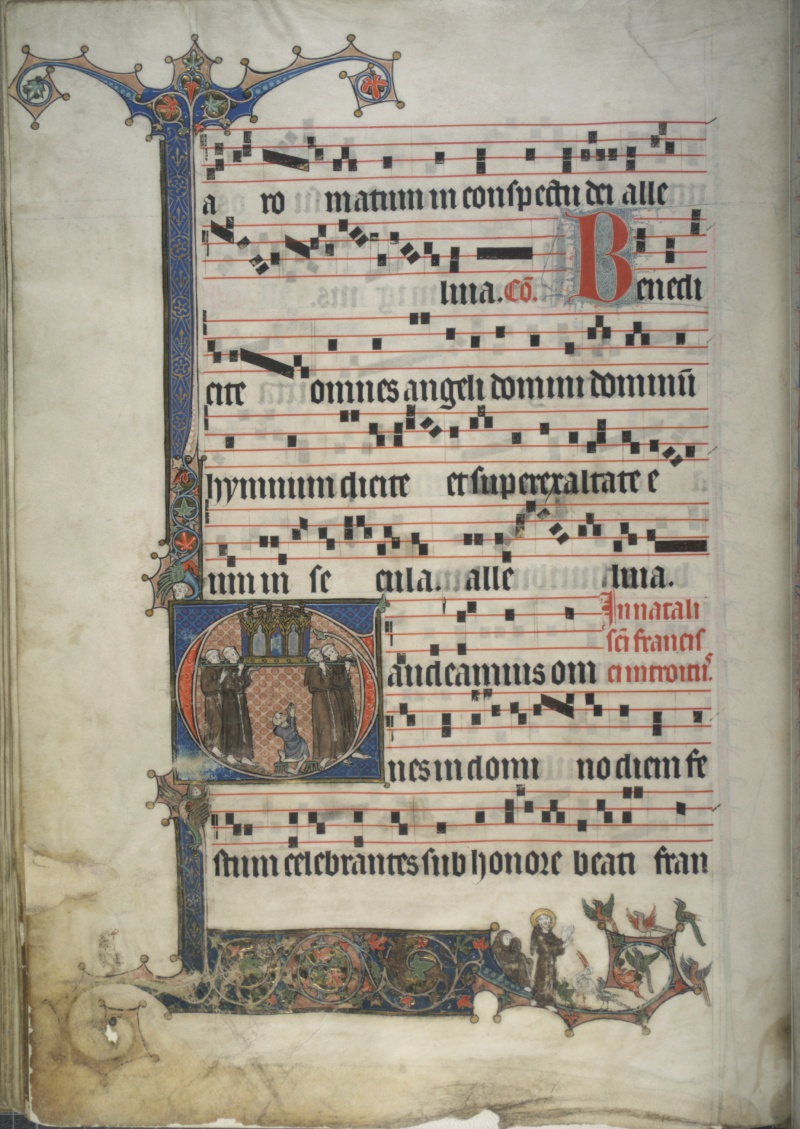 a ro matum in conspectu dei alle
luia. Cō. Benedi
cite omnes angeli domini dominū
hymnum dicite et superexaltate e
um in se cula. alle luia.
In natali
sci francis
ci introitus.
Gaudeamus om
nes in domi no diem fe
stum celebrantes sub honore beati fran